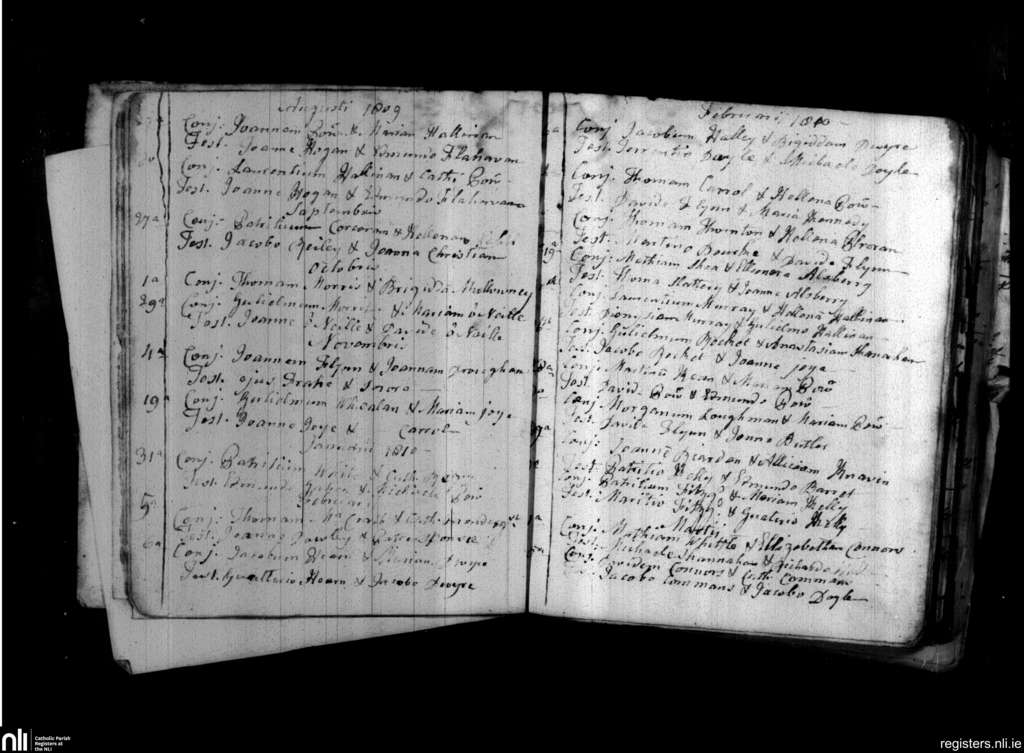 Augusti 1809
Conj. Joannem Bow̄ & Mariam Hallinan
Test. Joanne Hogan & Edmundo Flahavan
Conj. Laurentium Hallinan & Cath. Bow̄
Test. Joanne Hogan & Edmundo Flahavan
Septembris
27a Conj. Patritium Corcoran & Hellenam
Test. Jacobo Reiley & Joanna Christian
Octobris
1a Conj. Thomam Morris & Brigidda Mullowney
29a Conj. Gulielmum Morris & Mariam O Neille
Test. Joanne O Neille & Davide O Neille
Novembris
4a Conj. Joannem Flynn & Joannam Droughan
Test. ejus Frake & Sorore
19a Conj. Gulielmum Whealan & Mariam Joye
Test. Joanne Joye & Carrol
Januarii 1810
31a Conj. Patritium White & Cath.
Test. Edmundo & Michaele Bow̄
Februarii
5a Conj. Thomam McCrath & Cath.
Test. Joanne Dawley &
6a Conj. Jacobum Hearn & Mariam Dwyre
Test. Gualterio Hearn & Jacobo Dwyre
Februarii 1810
Conj. Jacobum Halley & Brigiddam Dwyre
Test. Terrentio Doyle & Michaele Doyle
Conj. Thomam Carrol & Hellena Bow̄
Test. Davide Flynn & Maria Kennedy
Conj. Thomam Thornton & Hellena
Test. Martino Bourke & Davide Flynn
19a Conj. Mathiam Shea & Elleonora Alsberry
Test. Thoma Slattery & Joanne Alsberry
Conj. Laurentium Murray & Hellena Hallinan
Test. Dionysiam Murray & Gulielmo Hallinan
Conj. Gulielmum Rocket & Anastasiam Shanahan
Test. Jacobo Rocket & Joanne Joye
Conj. Martinū Kean & Mariam Bow̄
Test. David Bow̄ & Edmundo Bow̄
Conj. Morganum Loughman & Mariam Bow̄
Test. Davide Flynn & Joanne Butler
Conj. Joannē Reardon & Alliciam Knavin
Test. Patritio Kelly & Edmundo Barret
Conj. Patritium Fitzgd & Mariam Kelly
Test. Maritio Fitzgd & Gualterio Kelly
Martij
Conj. Mathiam Whittle & Elizabetham Connors
Test. Michaele Shannahan & Richardo
Conj. Connors & Cath. Commans
Test. Jacobo Commans & Jacobo Doyle
nli
Catholic Parish
Registers at
the NLI
registers.nli.ie